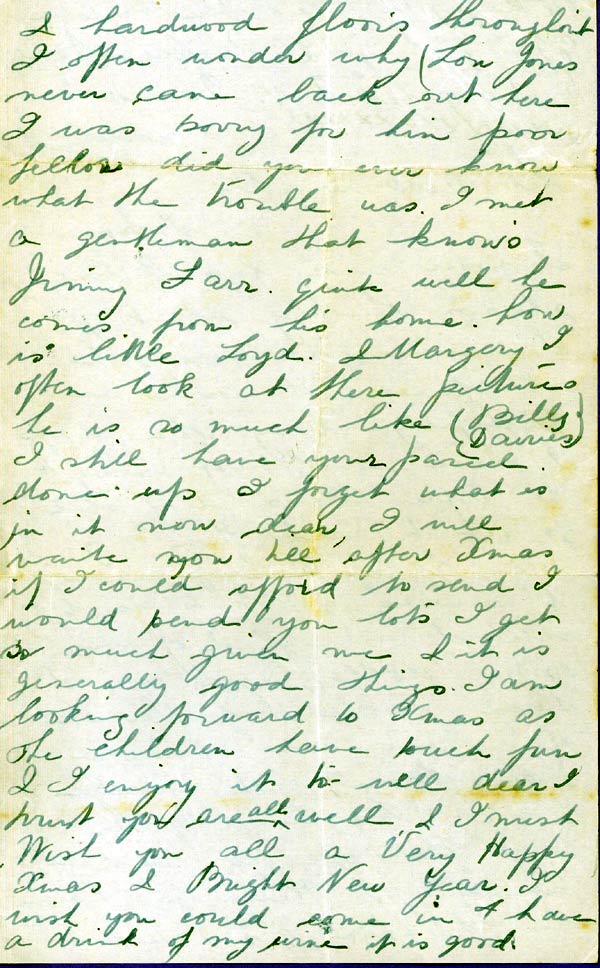 & hardwood floors throughout
I often wonder why (Lon Jones
never came back out here
I was sorry for him poor
fellow did you ever know
what the trouble was. I met
a gentleman that knows
Jimmy Farr. quite well he
comes from his home. how
is little Loyd. & Margery I
often look at there pictures
he is so much like (Bills
Davies)
I still have your parcel
done up & forget what is
in it now dear, I will
waite now till after Xmas
if I could afford to send I
would send you lots I get
so much given me & it is
generally good things. I am
looking forward to Xmas as
the children have such fun
& I enjoy it to well dear I
trust you are all well & I must
Wish you all a Very Happy
Xmas & Bright New Year. I
wish you could come in & have
a drink of my wine it is good.